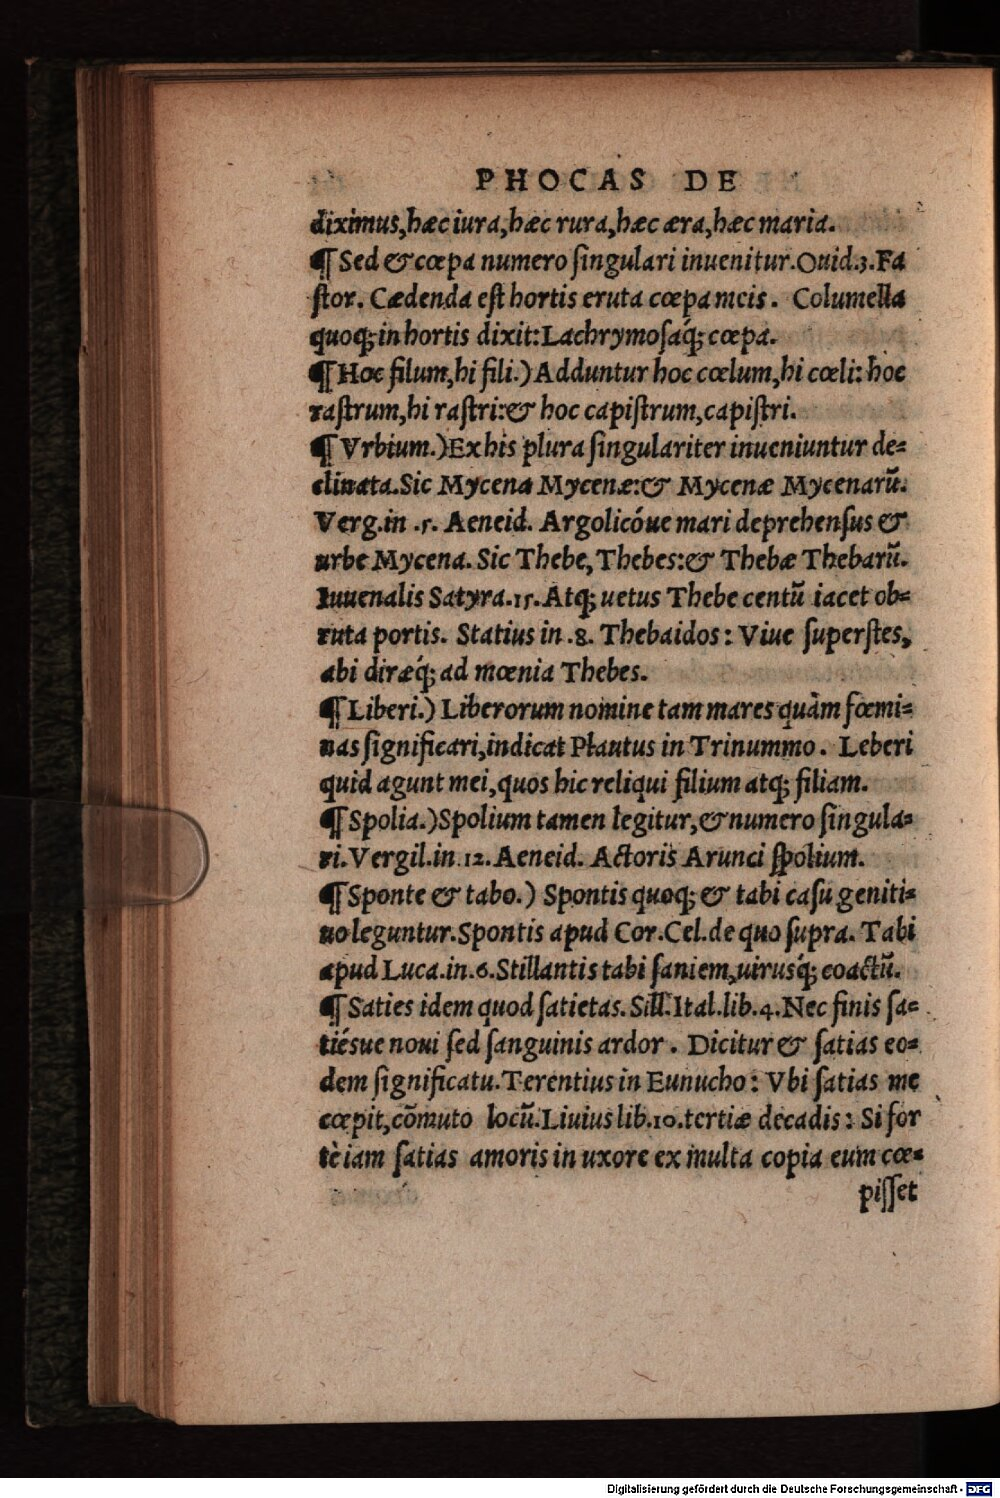 PHOCAS DE
diximus, hæc iura, hæc rura, hæc æra, hæc maria.
¶ Sed & cœpa numero ſingulari inuenitur. Ouid.3. Fa
ſtor. Cædenda eſt hortis eruta cœpa meis. Columella
quoq; in hortis dixit: Lachrymoſaq́; cœpa.
¶ Hoc filum, hi fili.) Adduntur hoc cœlum, hi cœli: hoc
raſtrum, hi raſtri: & hoc capiſtrum, capiſtri.
¶ Vrbium.) Ex his plura ſingulariter inueniuntur de=
clinata. Sic Mycena Mycenæ: & Mycenæ Mycenarũ.
Verg. in .5. Aeneid. Argolicóue mari deprehenſus &
urbe Mycena. Sic Thebe, Thebes: & Thebæ Thebarũ.
Iuuenalis Satyra.15. Atq; uetus Thebe centũ iacet ob=
ruta portis. Statius in .8. Thebaidos: Viue ſuperſtes,
abi diræq́; ad mœnia Thebes.
¶ Liberi.) Liberorum nomine tam mares quàm fœmi=
nas ſignificari, indicat Plautus in Trinummo. Leberi
quid agunt mei, quos hic reliqui filium atq; filiam.
¶ Spolia.) Spolium tamen legitur, & numero ſingula=
ri. Vergil. in .12. Aeneid. Actoris Arunci ſpolium.
¶ Sponte & tabo.) Spontis quoq; & tabi caſu geniti=
uo leguntur. Spontis apud Cor. Cel. de quo ſupra. Tabi
apud Luca. in .6. Stillantis tabi ſaniem, uirusq́; coactũ.
¶ Saties idem quod ſatietas. Sill. Ital. lib. 4. Nec finis ſa=
tiésue noui ſed ſanguinis ardor. Dicitur & ſatias eo=
dem ſignificatu. Terentius in Eunucho: Vbi ſatias me
cœpit, cõmuto locũ. Liuius lib. 10. tertiæ decadis: Si for
tè iam ſatias amoris in uxore ex multa copia eum cœ=
piſſet
Digitalisierung gefördert durch die Deutsche Forschungsgemeinschaft - DFG